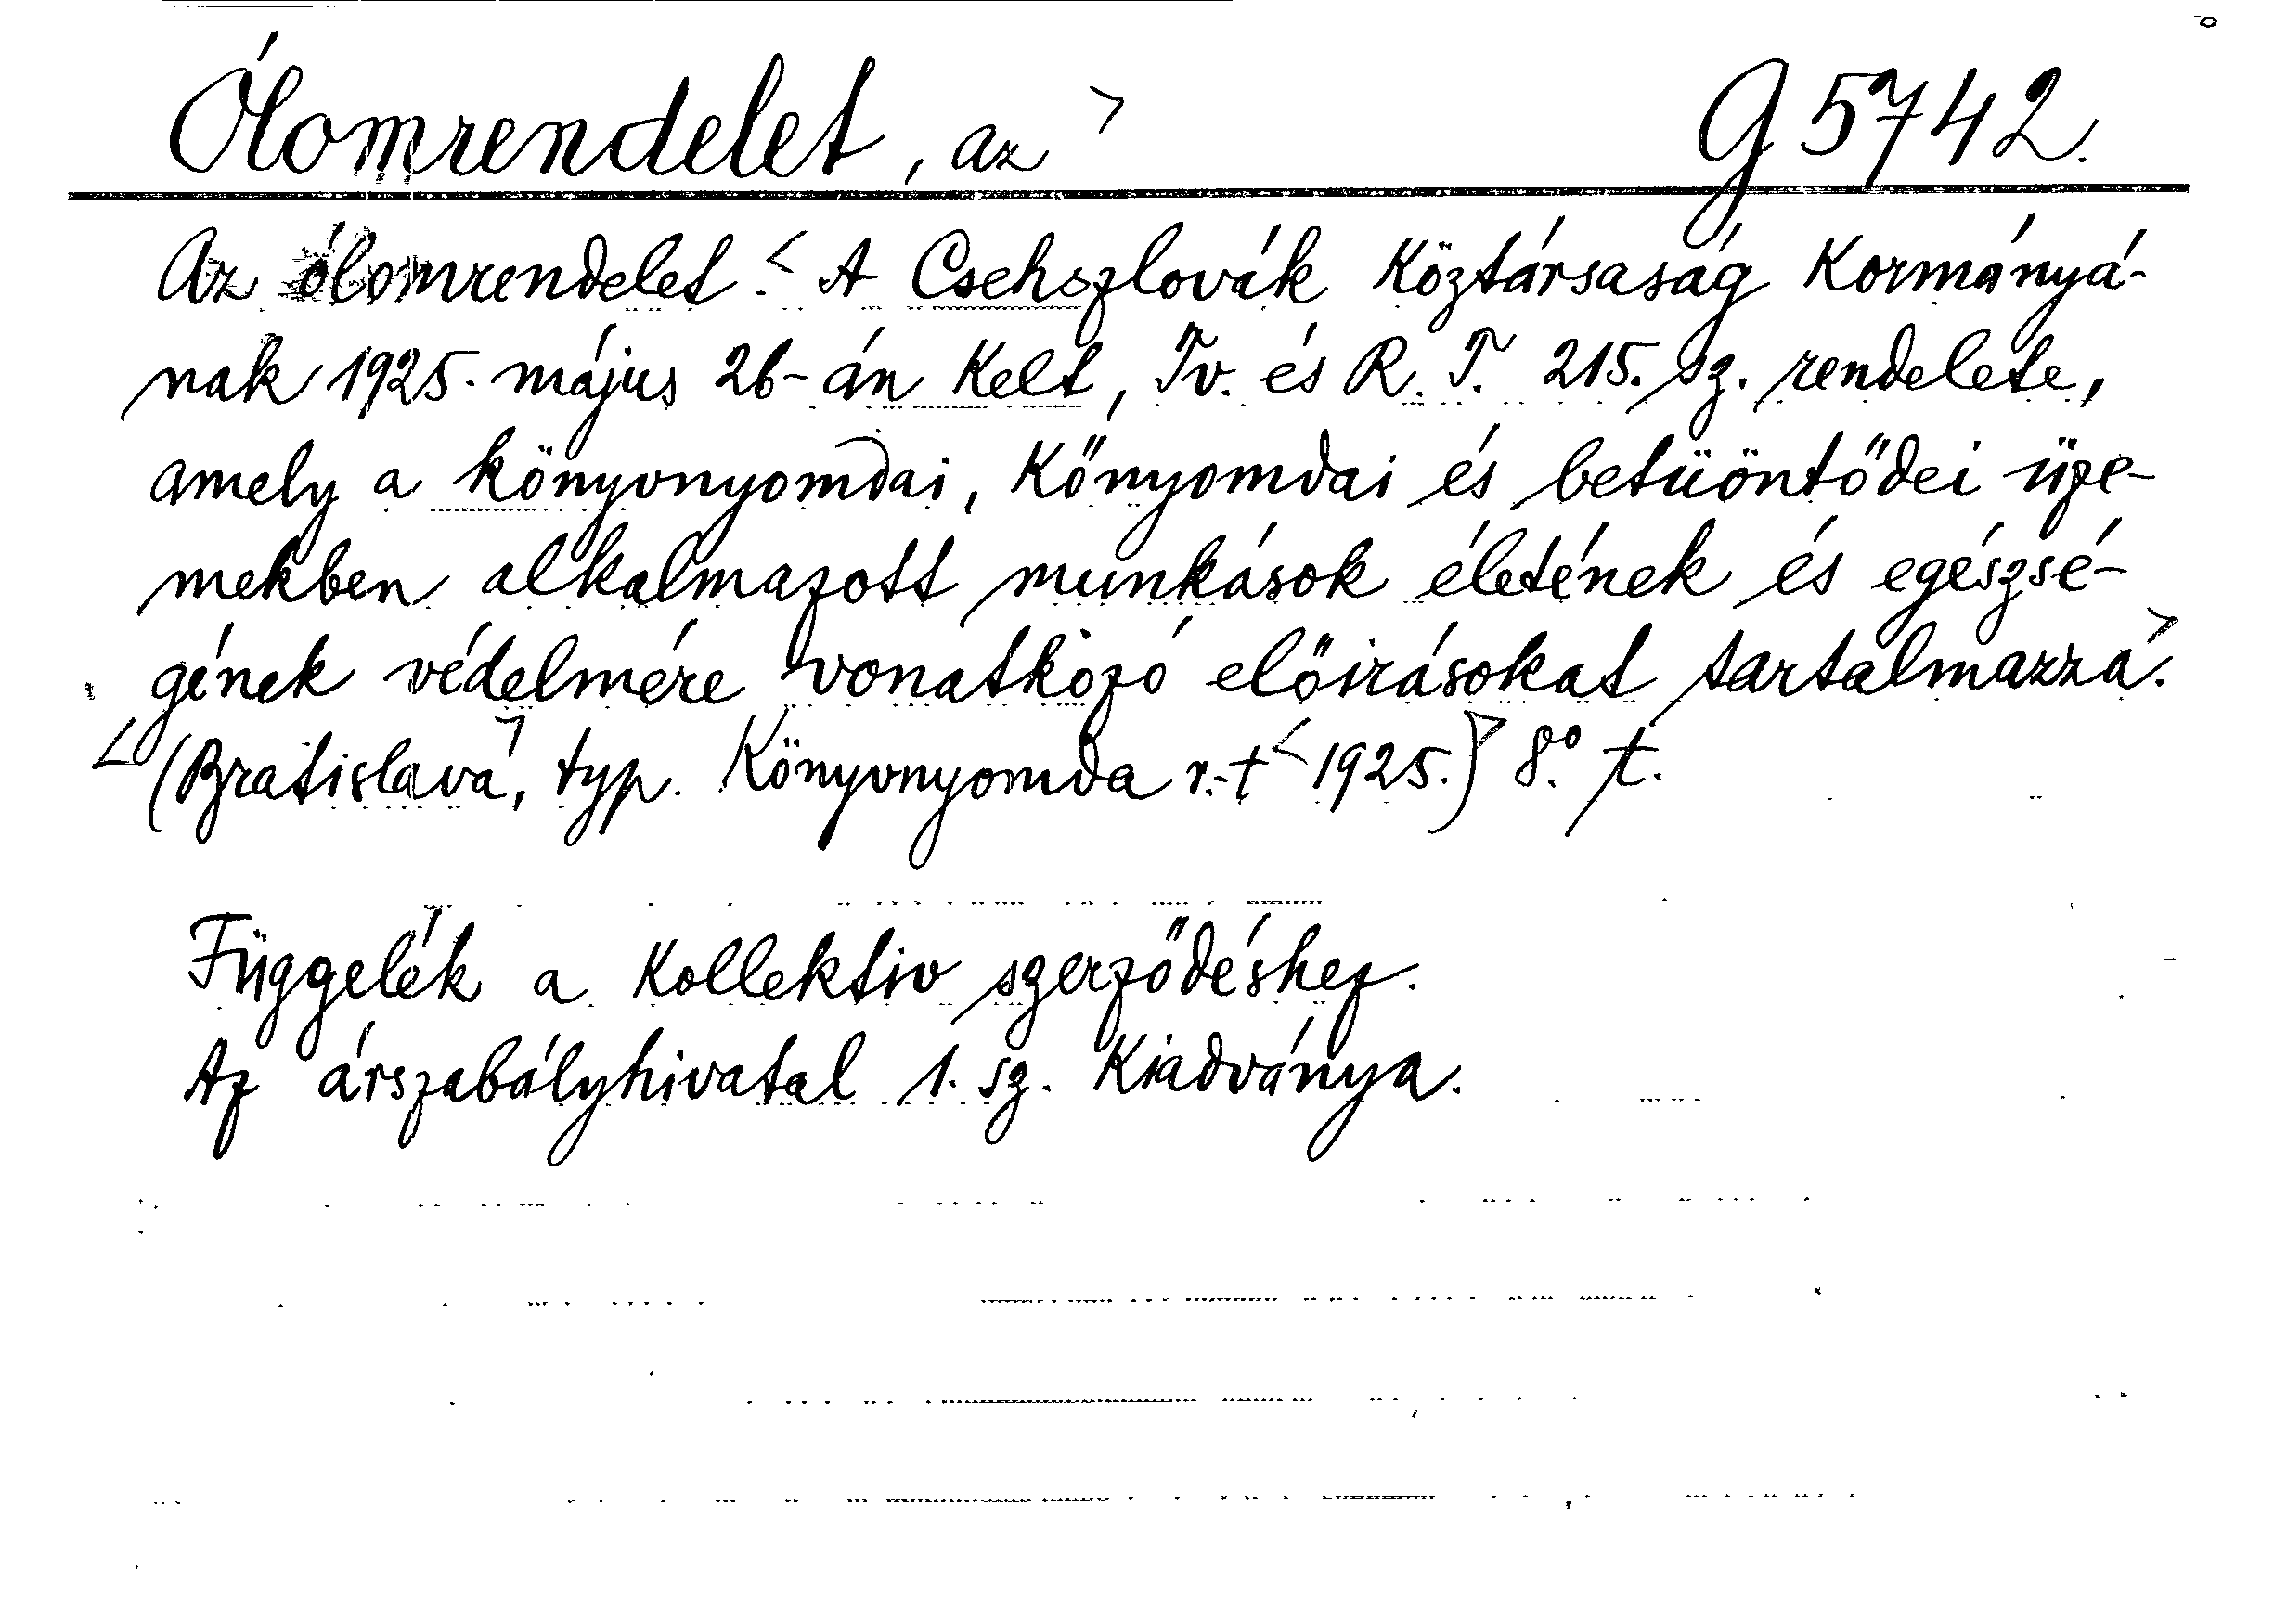 Ólomrendelet, az> G 5742.
Az ólomrendelet.< A Csehszlovák Köztársaság Kormányá-
nak 1925. május 26-án kelt, Tv. és R. T. 215. sz. rendelete,
amely a könyvnyomdai, kőnyomdai és betüöntődei üze-
mekben alkalmazott munkások életének és egészsé-
gének védelmére vonatkozó előirásokat tartalmazza.>
<(Bratislava>, typ. Könyvnyomda r.-t< 1925.)> 8.° t.
Függelék a Kollektiv szerződéshez.
Az árszabályhivatal 1. sz. Kiadványa.